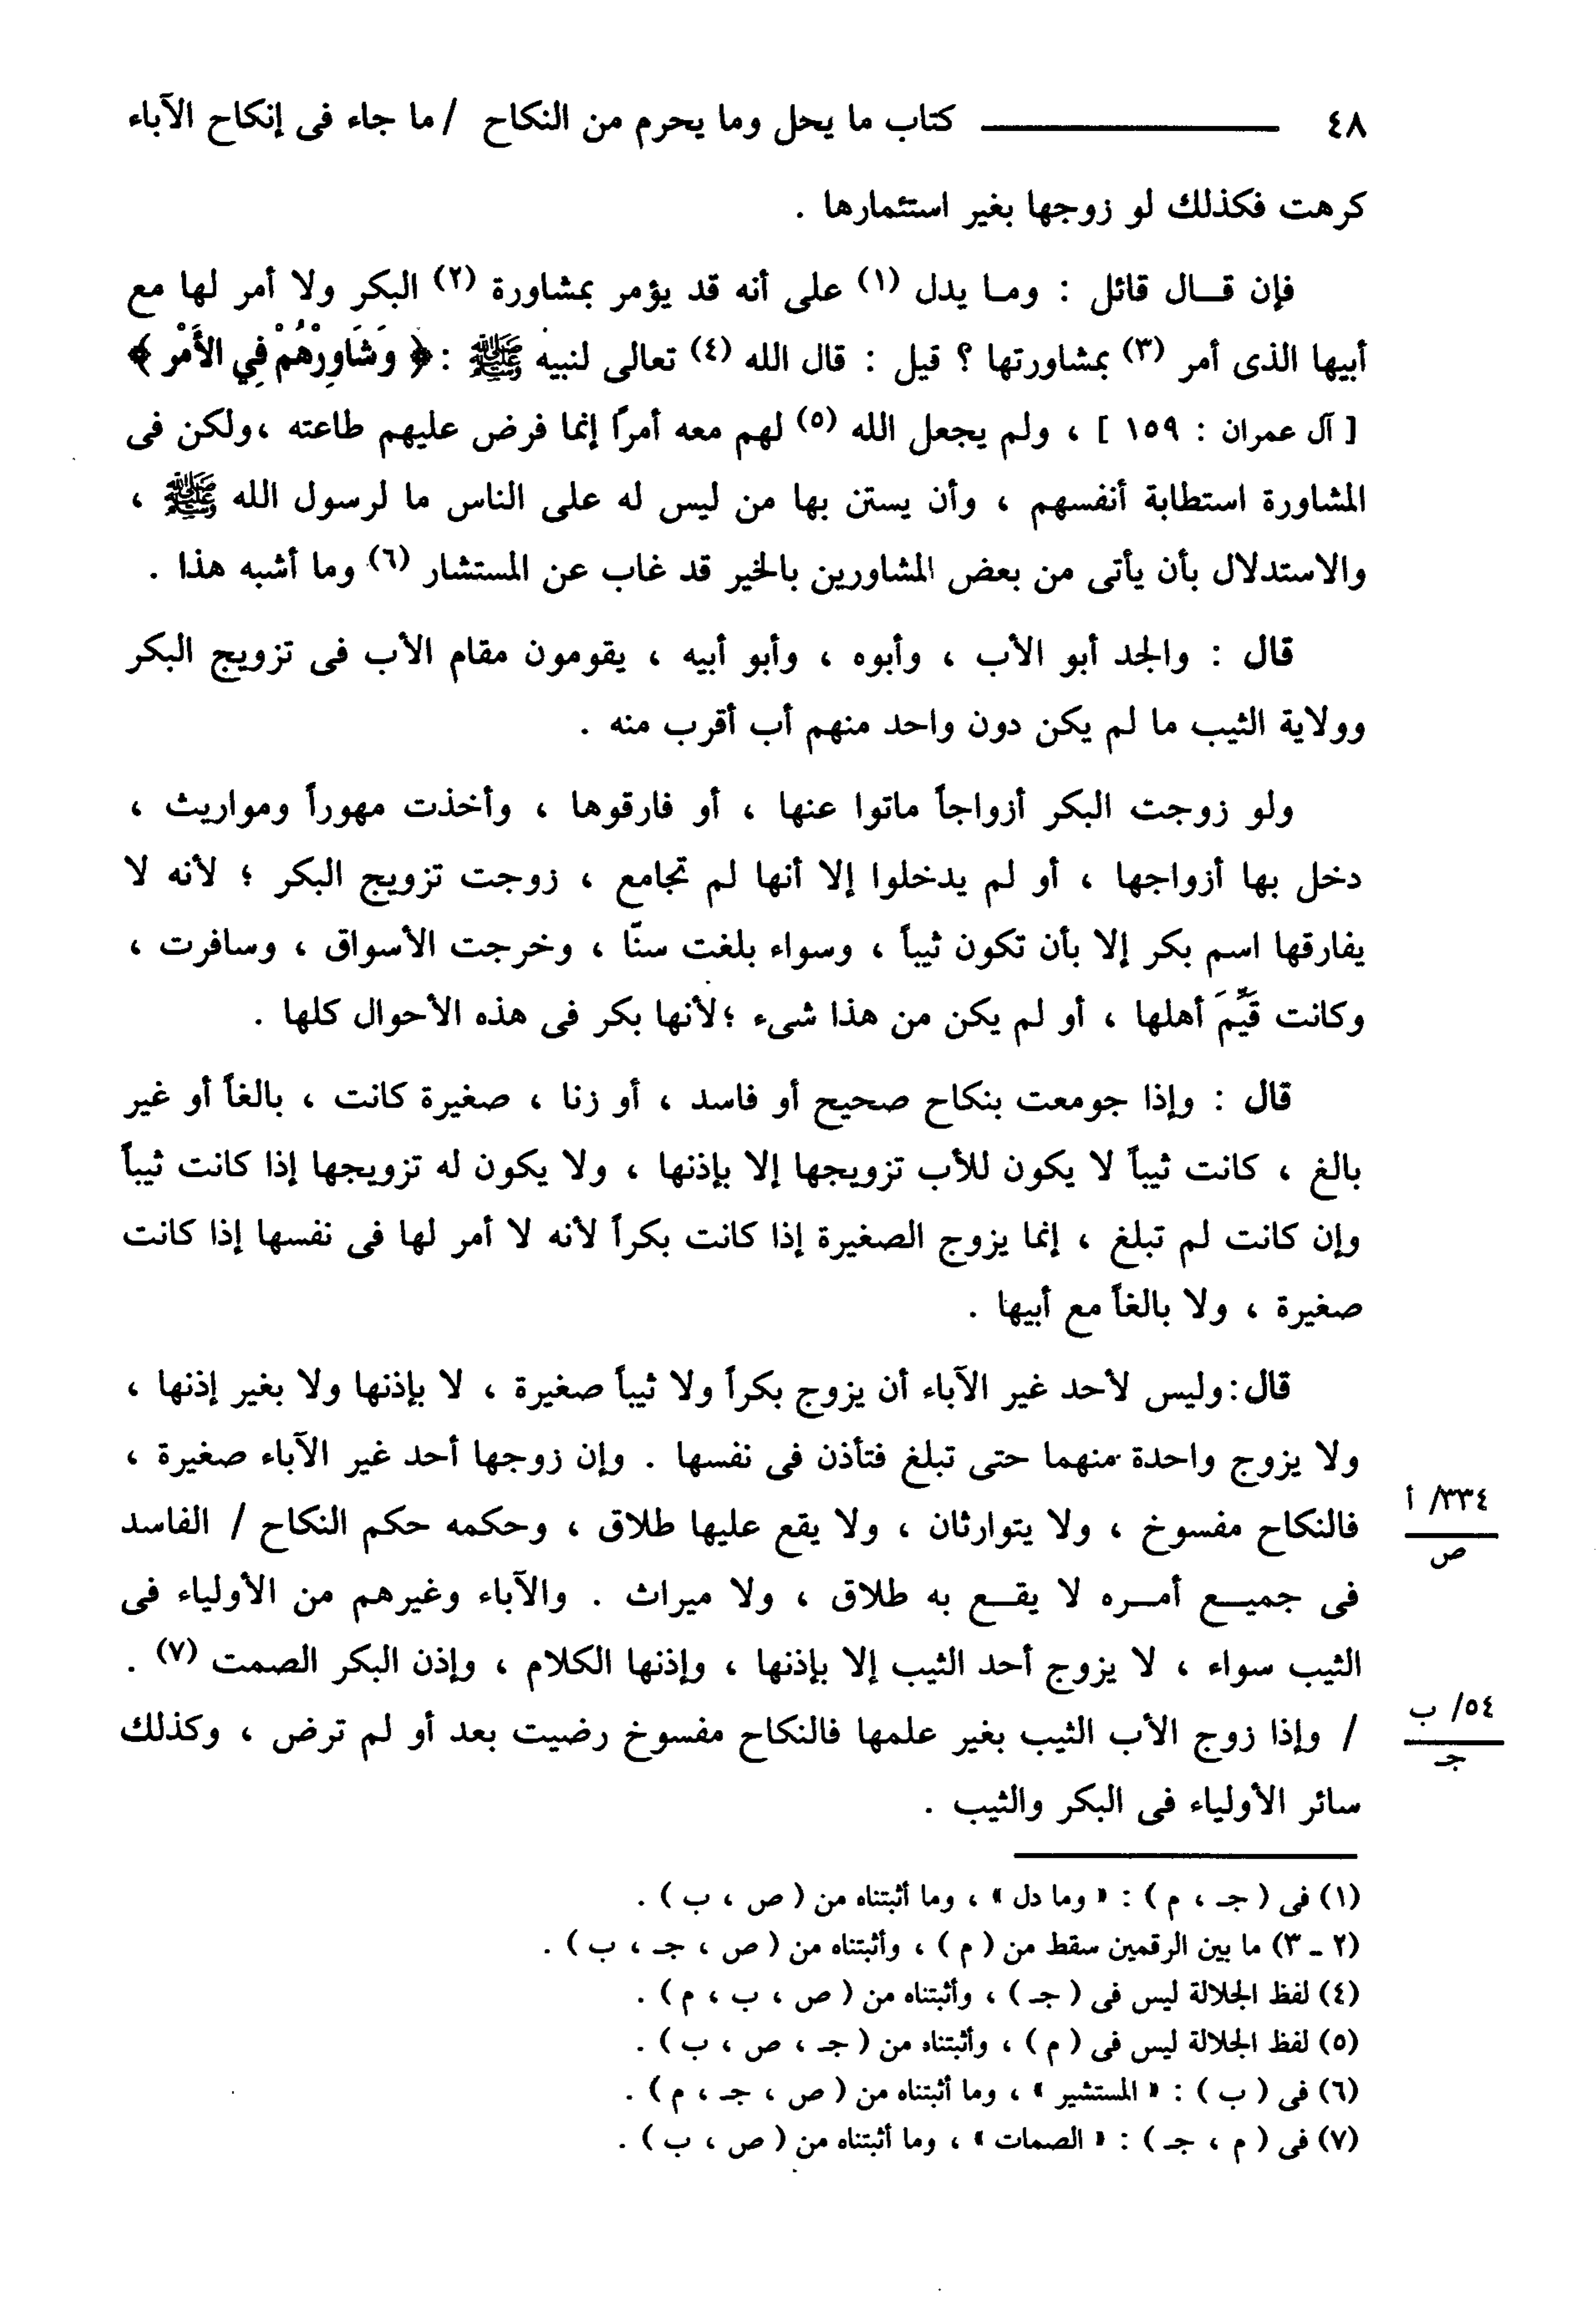 ٤٨ ــــــــــــــ كتاب ما يحل وما يحرم من النكاح / ما جاء فى إنكاح الآباء
كرهت فكذلك لو زوجها بغير استئمارها .
فإن قــال قائل : ومـا يدل (١) على أنه قد يؤمر بمشاورة (٢) البكر ولا أمر لها مع
أبيها الذى أمر (٣) بمشاورتها ؟ قيل : قال الله (٤) تعالى لنبيه ﷺ : ﴿ وَشَاوِرْهُمْ فِي الأَمْرِ ﴾
[ آل عمران : ١٥٩ ] ، ولم يجعل الله (٥) لهم معه أمراً إنما فرض عليهم طاعته ،ولكن فى
المشاورة استطابة أنفسهم ، وأن يستن بها من ليس له على الناس ما لرسول الله ﷺ ،
والاستدلال بأن يأتى من بعض المشاورين بالخير قد غاب عن المستشار (٦) وما أشبه هذا .
قال : والجد أبو الأب ، وأبوه ، وأبو أبيه ، يقومون مقام الأب فى تزويج البكر
وولاية الثيب ما لم يكن دون واحد منهم أب أقرب منه .
ولو زوجت البكر أزواجاً ماتوا عنها ، أو فارقوها ، وأخذت مهوراً ومواريث ،
دخل بها أزواجها ، أو لم يدخلوا إلا أنها لم تجامع ، زوجت تزويج البكر ؛ لأنه لا
يفارقها اسم بكر إلا بأن تكون ثيباً ، وسواء بلغت سنّا ، وخرجت الأسواق ، وسافرت ،
وكانت قَيِّمَ أهلها ، أو لم يكن من هذا شىء ؛لأنها بكر فى هذه الأحوال كلها .
قال : وإذا جومعت بنكاح صحيح أو فاسد ، أو زنا ، صغيرة كانت ، بالغاً أو غير
بالغ ، كانت ثيباً لا يكون للأب تزويجها إلا بإذنها ، ولا يكون له تزويجها إذا كانت ثيباً
وإن كانت لم تبلغ ، إنما يزوج الصغيرة إذا كانت بكراً لأنه لا أمر لها فى نفسها إذا كانت
صغيرة ، ولا بالغاً مع أبيها .
قال :وليس لأحد غير الآباء أن يزوج بكراً ولا ثيباً صغيرة ، لا بإذنها ولا بغير إذنها ،
ولا يزوج واحدة منهما حتى تبلغ فتأذن فى نفسها . وإن زوجها أحد غير الآباء صغيرة ،
٣٣٤/ أ
ص
فالنكاح مفسوخ ، ولا يتوارثان ، ولا يقع عليها طلاق ، وحكمه حكم النكاح / الفاسد
فى جميــع أمــره لا يقــع به طلاق ، ولا ميراث . والآباء وغيرهم من الأولياء فى
الثيب سواء ، لا يزوج أحد الثيب إلا بإذنها ، وإذنها الكلام ، وإذن البكر الصمت (٧) .
٥٤/ ب
جـ
/ وإذا زوج الأب الثيب بغير علمها فالنكاح مفسوخ رضيت بعد أو لم ترض ، وكذلك
سائر الأولياء فى البكر والثيب .
(١) فى ( جـ ، م ) : « وما دل » ، وما أثبتناه من ( ص ، ب ) .
(٢ ـ ٣) ما بين الرقمين سقط من ( م ) ، وأثبتناه من ( ص ، جـ ، ب ) .
(٤) لفظ الجلالة ليس فى ( جـ ) ، وأثبتناه من ( ص ، ب ، م ) .
(٥) لفظ الجلالة ليس فى ( م ) ، وأثبتناه من ( جـ ، ص ، ب ) .
(٦) فى ( ب ) : « المستشير » ، وما أثبتناه من ( ص ، جـ ، م ) .
(٧) فى ( م ، جـ ) : « الصمات » ، وما أثبتناه من ( ص ، ب ) .